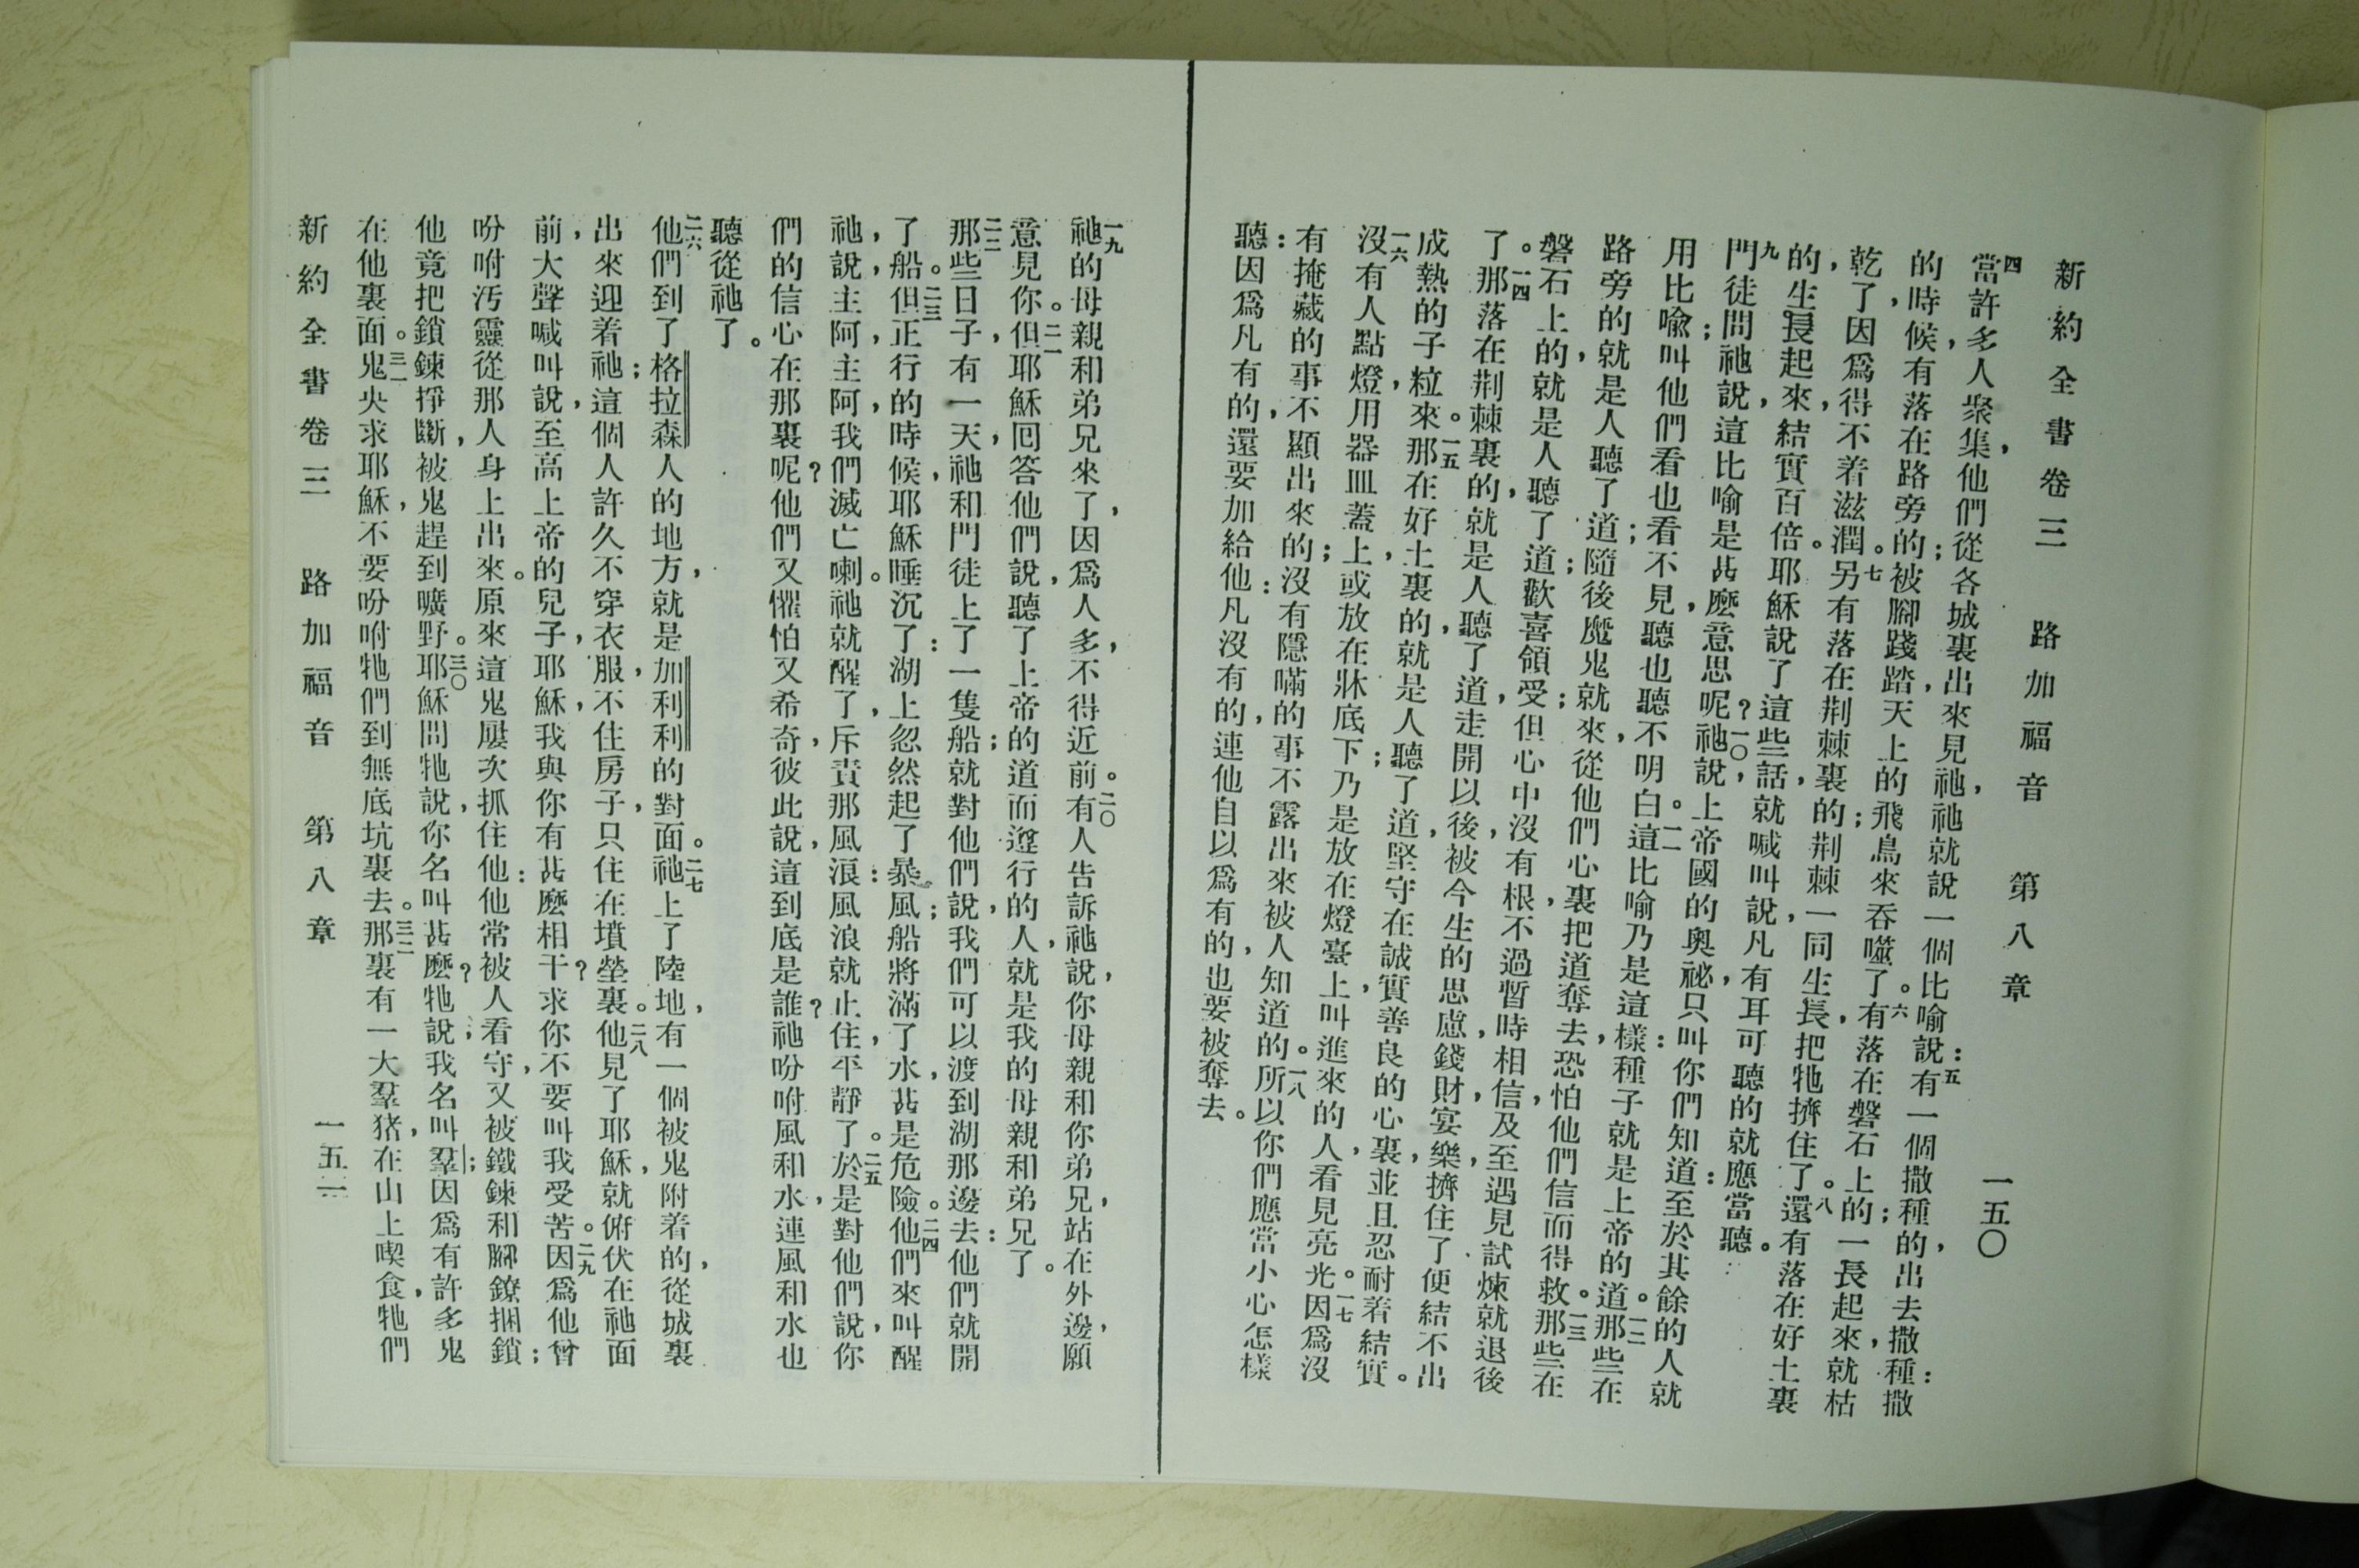 新約全書卷三 路加福音 第八章 一五〇
四當許多人聚集,他們從各城裏出來見祂,祂就說一個比喻說:五有一個撒種的,出去撒種:撒
的時候,有落在路旁的;被腳踐踏,天上的飛鳥來吞噬了。六有落在磐石上的;一長起來,就枯
乾了,因爲得不着滋潤。七另有落在荆棘裏的;荆棘一同生長,把牠擠住了。八還有落在好土裏
的,生長起來,結實百倍。耶穌說了這些話,就喊叫說,凡有耳可聽的就應當聽。
九門徒問祂說,這比喻是甚麽意思呢?一〇祂說,上帝國的奧祕,只叫你們知道:至於其餘的人就
用比喻;叫他們看也看不見,聽也聽不明白。一一這比喻乃是這樣:種子就是上帝的道。一二那些在
路旁的就是人聽了道;隨後魔鬼就來,從他們心裏把道奪去,恐怕他們信而得救。一三那些在
磐石上的,就是人聽了道;歡喜領受;但心中沒有根,不過暫時相信,及至遇見試煉就退後
了。一四那落在荆棘裏的,就是人聽了道,走開以後,被今生的思慮,錢財,宴樂,擠住了,便結不出
成熟的子粒來。一五那在好土裏的,就是人聽了道,堅守在誠實善良的心裏,並且忍耐着結實。
一六沒有人點燈,用器皿蓋上,或放在牀底下;乃是放在燈臺上,叫進來的人,看見亮光。一七因爲沒
有掩藏的事,不顯出來的;沒有隱瞞的事,不露出來被人知道的。一八所以你們應當小心怎樣
聽:因爲凡有的,還要加給他:凡沒有的,連他自以爲有的,也要被奪去。
一九祂的母親和弟兄來了,因爲人多,不得近前。二〇有人告訴祂說,你母親和你弟兄,站在外邊,願
意見你。二一但耶穌囘答他們說,聽了上帝的道而遵行的人,就是我的母親和弟兄了。
二二那些日子,有一天,祂和門徒上了一隻船;就對他們說,我們可以渡到湖那邊去:他們就開
了船。二三但正行的時候,耶穌睡沉了:湖上忽然起了暴風;船將滿了水,甚是危險。二四他們來叫醒
祂,說,主阿,主阿,我們滅亡喇。祂就醒了,斥責那風浪:風浪就止住,平靜了。二五於是對他們說,你
們的信心在那裏呢?他們又懼怕又希奇,彼此說,這到底是誰?祂吩咐風和水,連風和水也
聽從祂了。
二六他們到了格拉森人的地方,就是加利利的對面。二七祂上了陸地,有一個被鬼附着的,從城裏
出來迎着祂;這個人許久不穿衣服,不住房子,只住在墳塋裏。二八他見了耶穌,就俯伏在祂面
前,大聲喊叫說,至高上帝的兒子,耶穌,我與你有甚麽相干?求你不要叫我受苦。二九因爲他曾
吩咐汚靈從那人身上出來。原來這鬼屢次抓住他:他常被人看守,又被鐵鍊和腳鐐捆鎖;
他竟把鎖鍊掙斷,被鬼趕到曠野。三〇耶穌問牠說,你名叫甚麽?牠說,我名叫羣;因爲有許多鬼
在他裏面。三一鬼央求耶穌,不要吩咐牠們到無底坑裏去。三二那裏有一大羣猪,在山上喫食,牠們
新約全書卷三 路加福音 第八章 一五一